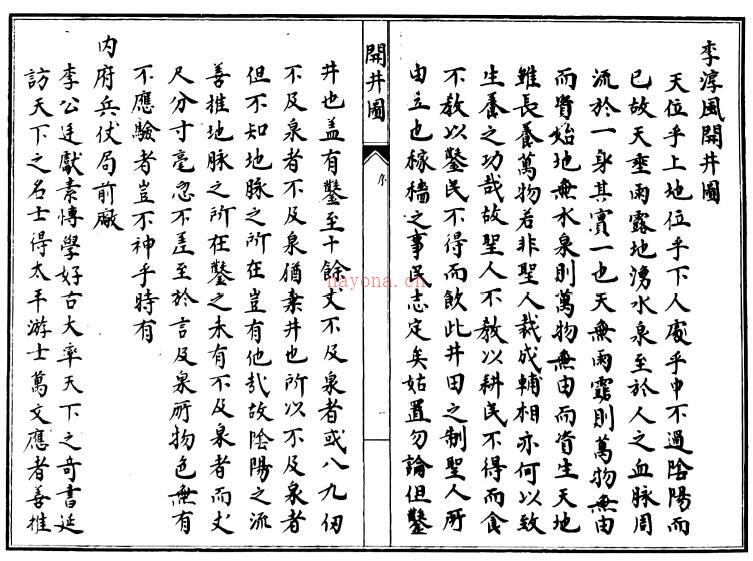 李淳風開井圖
天位乎上地位乎下人處乎中不過陰陽而
已故天垂雨露地湧水泉至於人之血脉周
流於一身其實一也天無雨露則萬物無由
而資始地無水泉則萬物無由而資生天地
雖長養萬物若非聖人裁成輔相亦何以致
生養之功哉故聖人不教以耕民不得而食
不教以鑿民不得而飲此井田之制聖人所
由立也稼穡之事民志定矣姑置勿論但鑿
開井圖
序
一
井也盖有鑿至十餘丈不及泉者或八九仞
不及泉者不及泉猶棄井也所以不及泉者
但不知地脉之所在豈有他哉故陰陽之流
善推地脉之所在鑿之未有不及泉者而丈
尺分寸毫忽不差至於言及泉所物色無有
不應驗者豈不神乎時有
内府兵仗局前廠
李公廷獻素博學好古大率天下之奇書延
訪天下之名士得太平游士萬文應者善推
nayona.cn